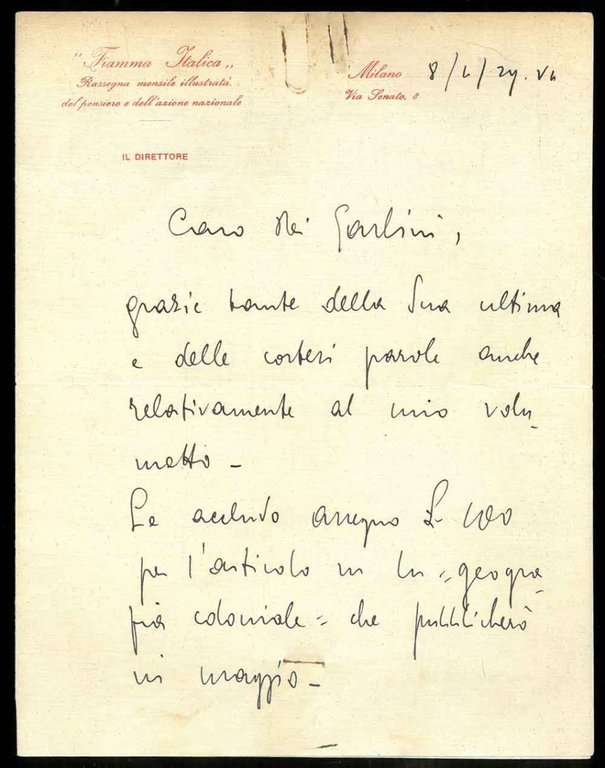 "Fiamma Italica„
Rassegna mensile illustrata
del pensiero e dell'azione nazionale
Milano 8/4/29. VII
Via Senato, 8
IL DIRETTORE
Caro Dei Gaslini,
grazie tante della Sua ultima
e delle cortesi parole anche
relativamente al mio volu-
metto –
Le accludo assegno £ 100
per l'articolo in la "geogra-
fia coloniale" che pubblicherò
in maggio –